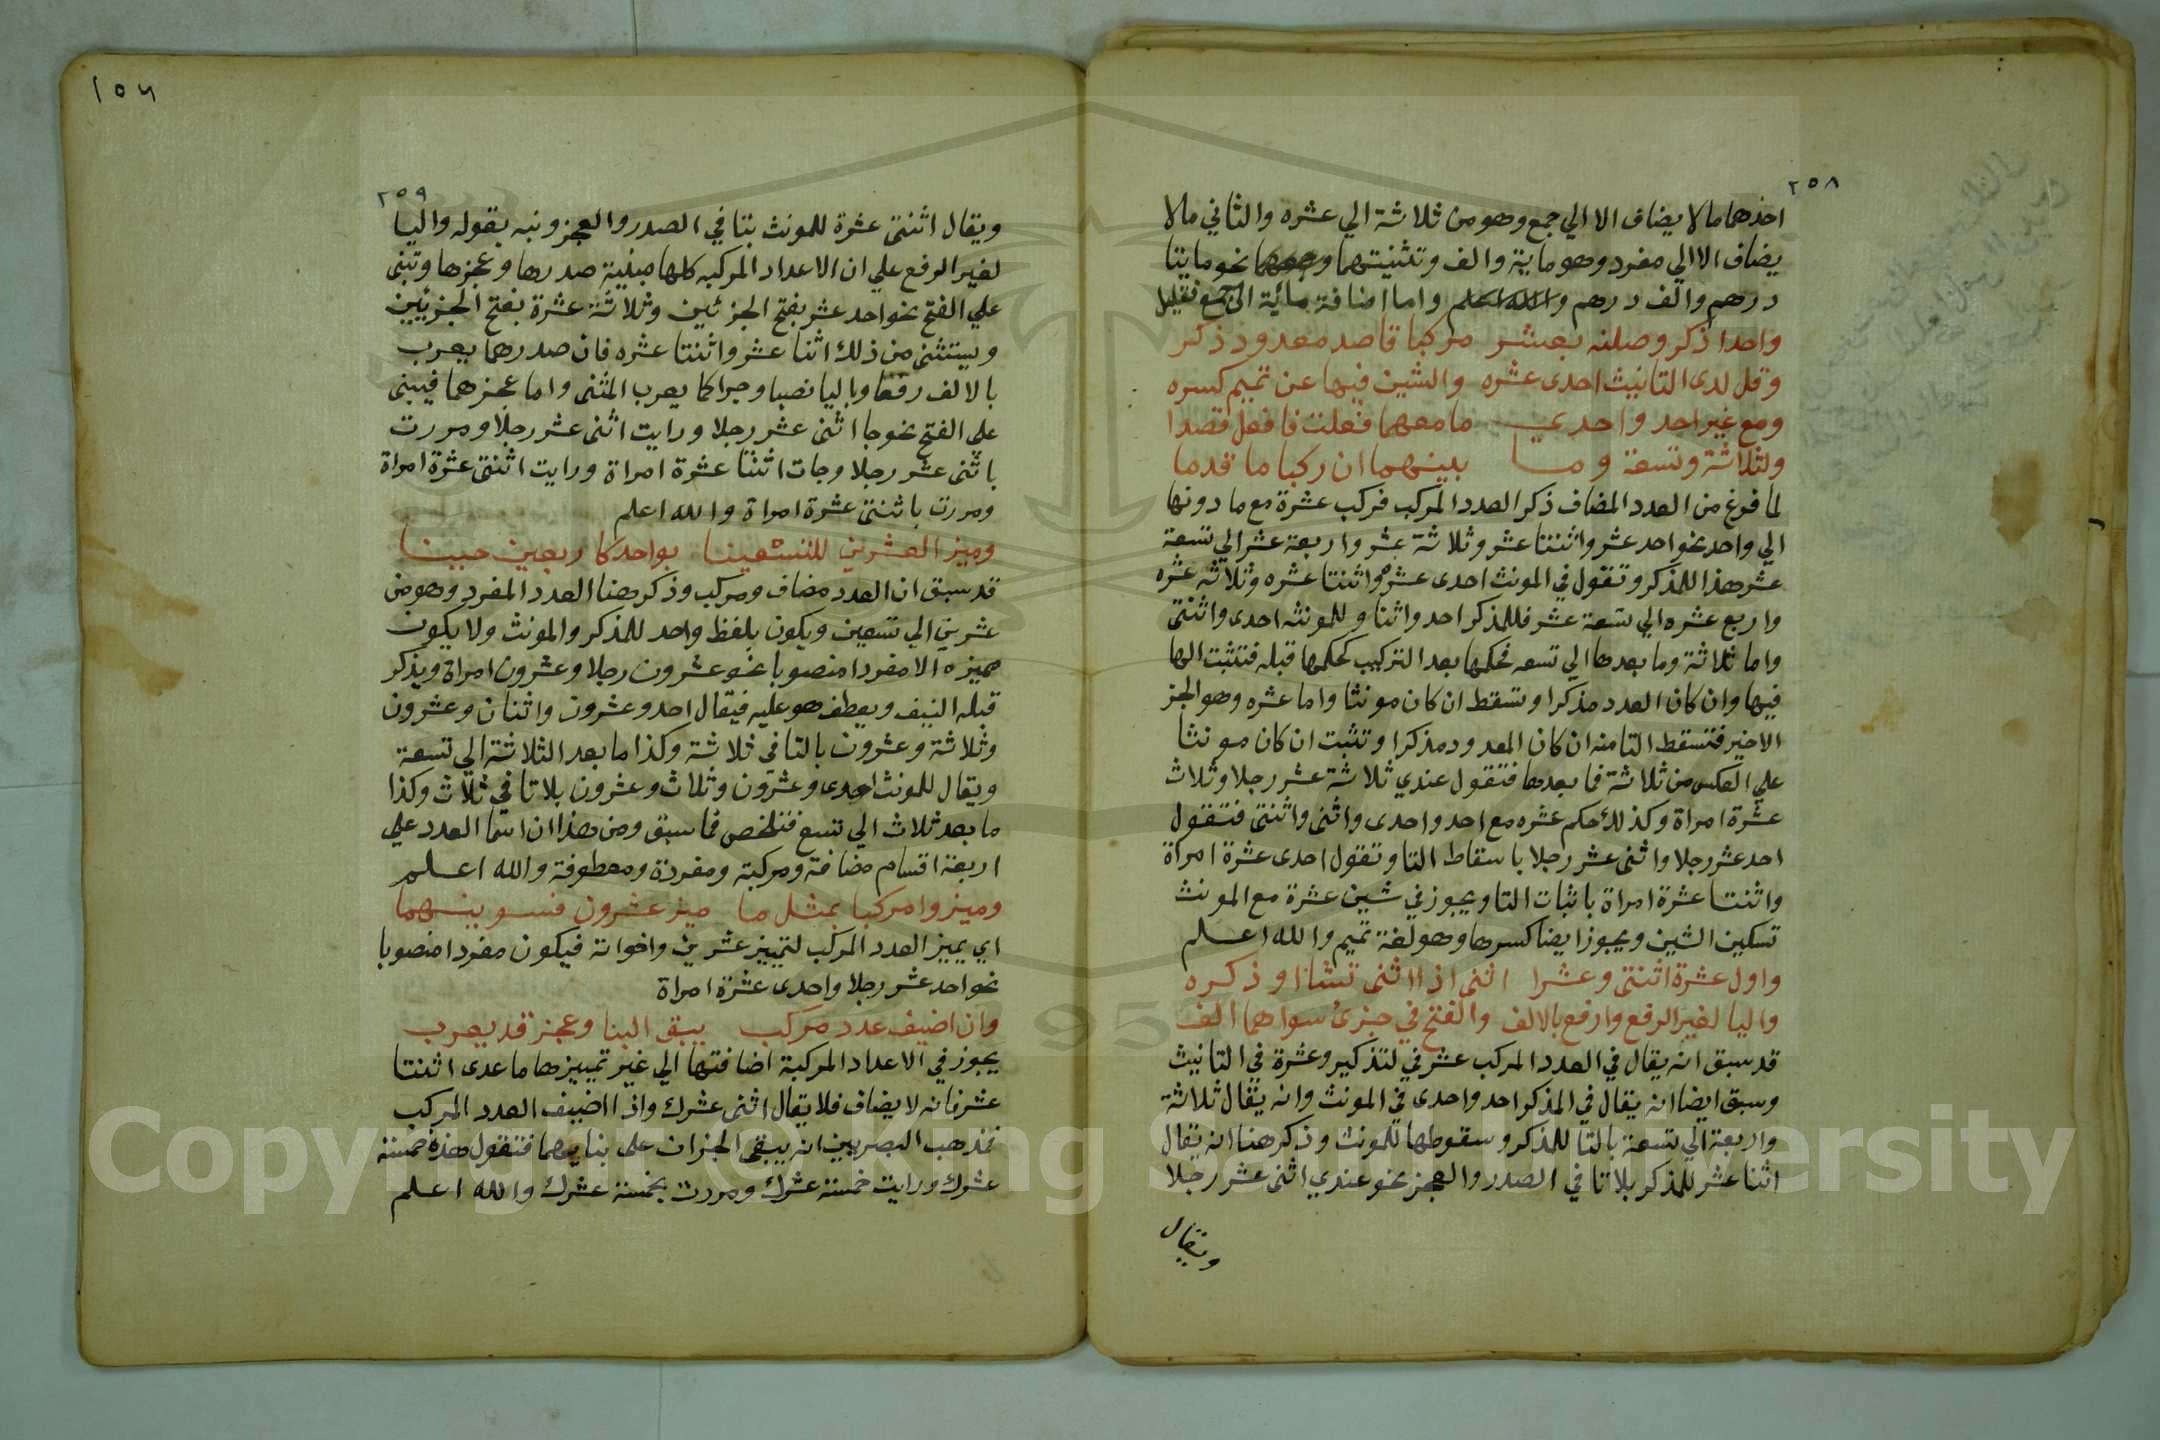 ٢٥٨
احدهما ما لا يضاف الا الي جمع وهو من ثلاثة الي عشره والثاني ما لا
يضاف الا الي مفرد وهو ماية والف وتثنيتهما وجمعهما نحو مايتا
درهم والف درهم والله اعلم واما اضافة مائة الى جمع فقليل
واحدا ذكر وصلنه بعشر مركبا قاصد معدود ذكر
وقل لدي التانيث احدى عشره والشين فيها عن تميم كسره
ومع غير احد واحدي ما معهما فعلت فافعل قصدا
ولثلاثة وتسعة وما بينهما ان ركبا ما قدما
لما فرغ من العدد المضاف ذكر العدد المركب فركب عشرة مع ما دونها
الي واحد نحو احد عشر واثنتنا عشر وثلاثة عشر واربعة عشر الي تسعة
عشر هذا للمذكر وتقول في المونث احدى عشره واثنتا عشره وثلاثه عشره
واربع عشره الي تسعة عشر فللمذكر احد واثنا وللمونثه احدى واثنتى
واما ثلاثة وما بعدها الي تسعه فحكمها بعد التركيب كحكمها قبله فتثبت الها
فيها وان كان العدد مذكرا وتسقط ان كان مونثا واما عشره وهو الجز
الاخير فتسقط التا منه ان كان المعدود مذكرا وتثبت ان كان مونثا
علي العكس من ثلاثة فما بعدها فتقول عندي ثلاثة عشر رجلا وثلاث
عشرة امراة وكذلك حكم عشره مع احد واحدى واثنى واثنتى فتقول
احد عشر رجلا واثنى عشر رجلا باسقاط التا وتقول احدى عشرة امراة
واثنتا عشرة امراة باثبات التا ويجوز في شين عشرة مع المونث
تسكين الشين ويجوز ايضا كسرها وهو لغة تميم والله اعلم
واول عشرة اثنتى وعشرا اثنى اذا اثنى تشا او ذكره
واليا لغير الرفع وارفع بالالف والفتح في جزئ سواهما الف
قد سبق انه يقال في العدد المركب عشر في لتذكير وعشرة في التانيث
وسبق ايضا انه يقال في المذكر احد واحدى في المونث وانه يقال ثلاثة
واربعة الي تسعة بالتا للمذكر وسقوطها للمونث وذكر هنا انه يقال
اثنا عشر للمذكر بلا تا في الصدر والعجز نحو عندي اثنى عشر رجلا
ويقال
١٥٦
٢٥٩
ويقال اثنتى عشرة للمونث بتا في الصدر والعجز ونبه بقوله واليا
لغير الرفع علي ان الاعداد المركبه كلها مبنية صدرها وعجزها وتبنى
علي الفتح نحو احد عشر بفتح الجزئين وثلاثة عشرة بفتح الجزئيين
ويستثنى من ذلك اثنا عشر واثنتا عشره فان صدرهما يعرب
بالالف رفعا وباليا نصبا وجرا كما يعرب المثنى واما عجزهما فيبنى
علي الفتح نحو جا اثنى عشر رجلا ورايت اثنى عشر رجلا ومررت
باثنى عشر رجلا وجات اثنتا عشرة امراة ورايت اثنتى عشرة امراة
ومررت باثنتى عشرة امراة والله اعلم
وميز العشرين للتسعينا بواحد كاربعين حينا
قد سبق ان العدد مضاف ومركب وذكر هنا العدد المفرد وهو من
عشرين الي تسعين ويكون بلفظ واحد للمذكر والمونث ولا يكون
مميزه الا مفردا منصوبا نحو عشرون رجلا وعشرون امراة ويذكر
قبله النيف ويعطف هو عليه فيقال احد وعشرون واثنان وعشرون
وثلاثة وعشرون بالتا في ثلاثة وكذا ما بعد الثلاثة الي تسعة
ويقال للمونث احدى وعشرون وثلاث وعشرون بلا تا في ثلاث وكذا
ما بعد ثلاث الي تسع فتلخص مما سبق ومن هذا ان اسما العدد علي
اربعة اقسام مضافة ومركبة ومفردة ومعطوفة والله اعلم
وميزوا مركبا بمثل ما ميز عشرون فسوينهما
اي يميز العدد المركب لتمييز عشرين واخواته فيكون مفردا منصوبا
نحو احد عشر رجلا واحدى عشرة امراة
وان اضيف عدد مركب يبقى البنا وعجز قد يعرب
يجوز في الاعداد المركبة اضافتها الي غير تمييزها ما عدى اثنتا
عشر فانه لا يضاف فلا يقال اثنى عشرك واذا اضيف العدد المركب
فمذهب البصريين انه يبقى الجزان على بنايهما فتقول هذه خمسة
عشرك ورايت خمسة عشرك ومررت بخمسة عشرك والله اعلم
Copyright © King Saud University